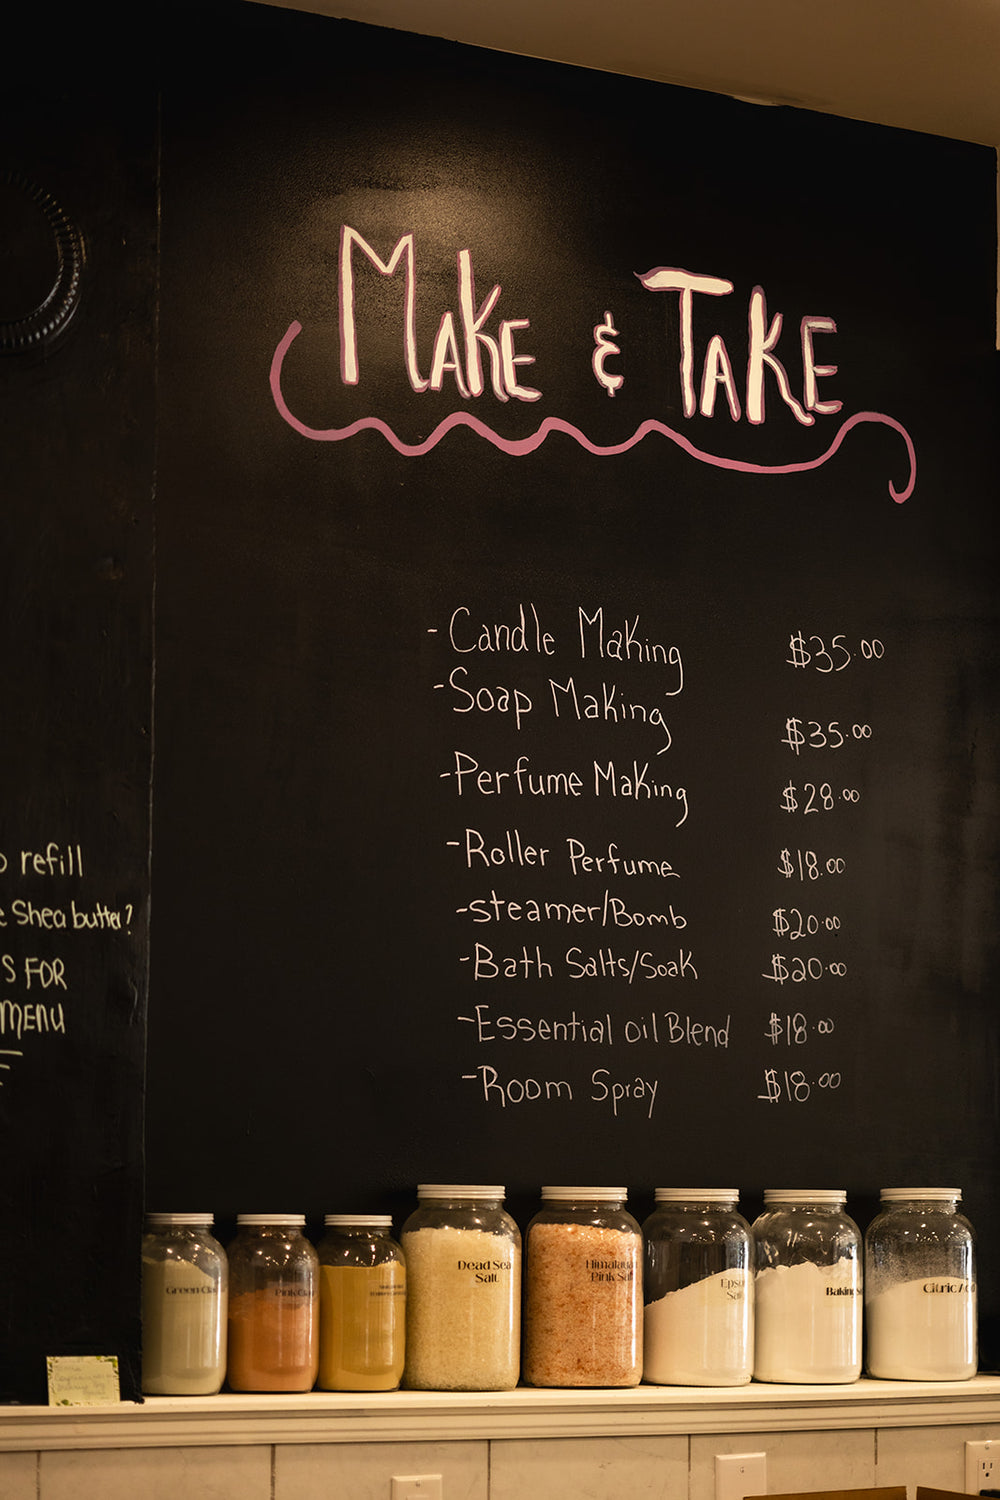 Make & Take
- Candle Making $35.00
- Soap Making $35.00
- Perfume Making $28.00
- Roller Perfume $18.00
- steamer/Bomb $20.00
- Bath Salts/Soak $20.00
- Essential oil Blend $18.00
- Room Spray $18.00
refill
Shea butter?
S FOR
MENU
Green Clay
Pink Clay
Dead Sea
Salt
Himalayan
Pink Salt
Epsom
Salt
Baking
Citric Acid